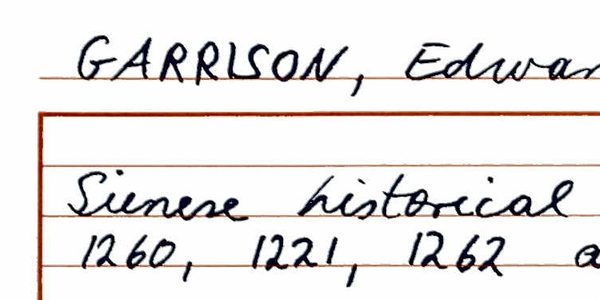 GARRISON, Edwar
Sienese historical
1260, 1221, 1262 a